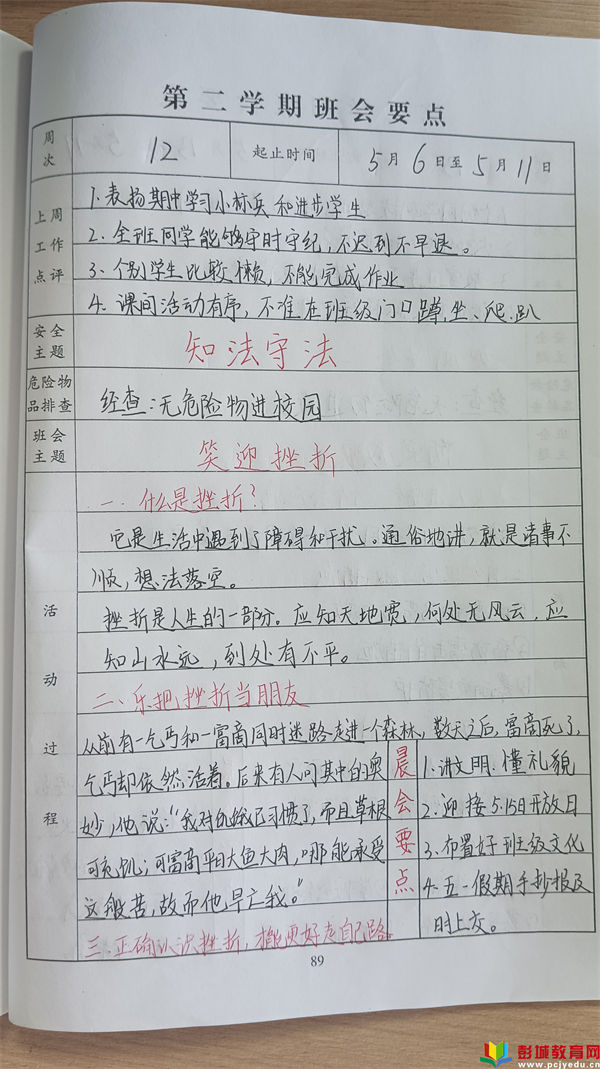 第二学期班会要点
周次 12 起止时间 5月6日至5月11日
上周工作点评
1.表扬期中学习小标兵和进步学生
2.全班同学能够守时守纪,不迟到不早退。
3、个别学生比较懒,不能完成作业
4.课间活动有序,不准在班级门口蹲、坐、爬、趴
安全主题 知法守法
危险物品排查 经查:无危险物进校园
班会主题 笑迎挫折
活动过程
一、什么是挫折?
它是生活中遇到了障碍和干扰。通俗地讲,就是诸事不
顺,想法落空。
挫折是人生的一部分。应知天地宽,何处无风云,应
知山水远,到处有不平。
二、乐把挫折当朋友
从前有一乞丐和一富商同时迷路走进一个森林,数天之后,富商死了,
乞丐却依然活着。后来有人问其中的奥
妙,他说:“我对饥饿已习惯了,而且草根
可充饥;可富商平日大鱼大肉,哪能承受
这般苦,故而他早亡我。”
三、正确认识挫折,才能更好走自己路。
晨会要点
1.讲文明.懂礼貌
2.迎接5.15日开放日
3.布置好班级文化
4.五一假期手抄报及
时上交。
89
彭城教育网
www.pcjyedu.cn